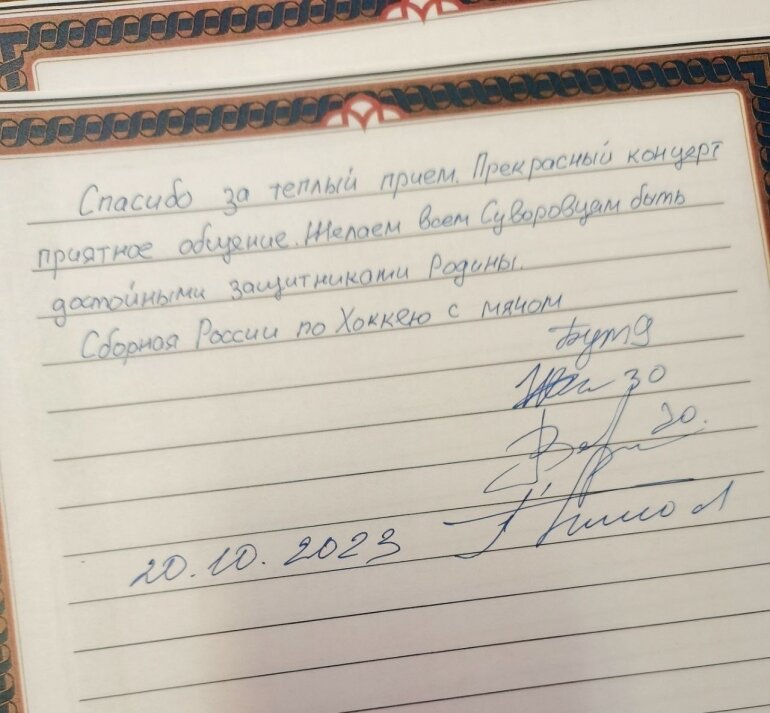 Спасибо за теплый прием. Прекрасный концерт
приятное общение. Желаем всем Суворовцам быть
достойными защитниками Родины.
Сборная России по Хоккею с мячом
30
20.
20.10.2023